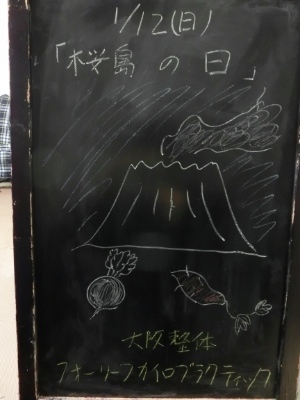 1/12(日)
「桜島の日」
大阪整体
フォーリーフカイロプラクティック